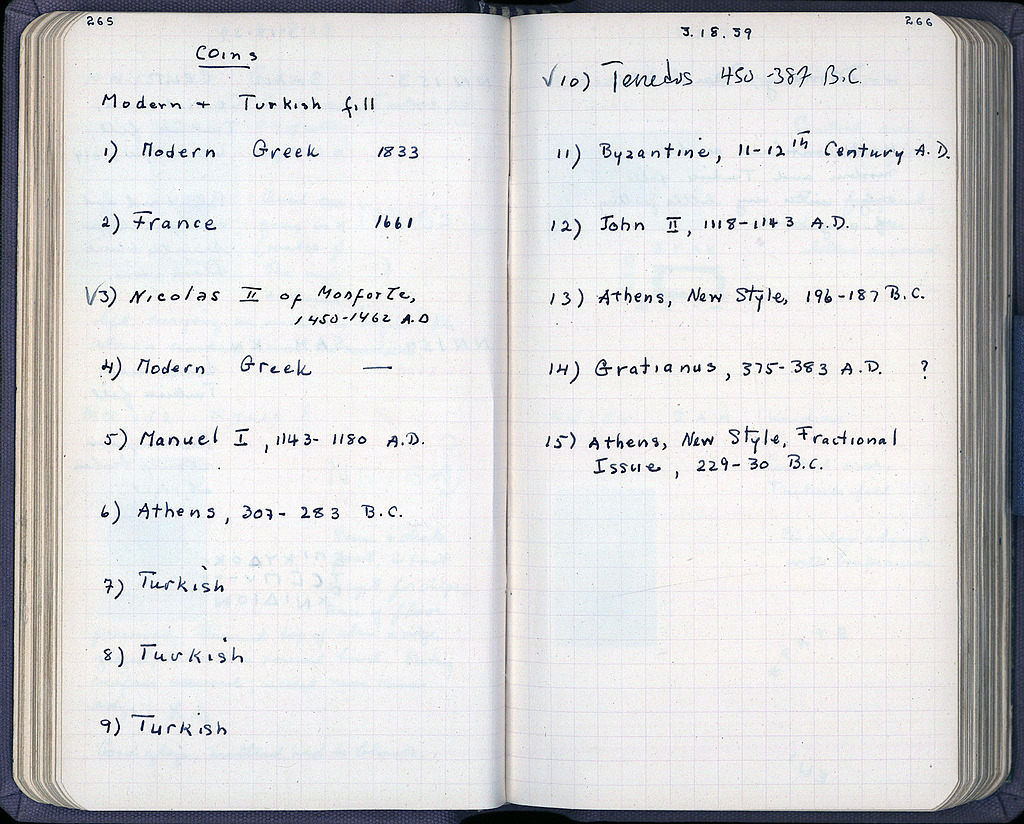 265
Coins
Modern + Turkish fill
1) Modern Greek 1833
2) France 1661
√3) Nicolas II of Monforte,
1450-1462 A.D
4) Modern Greek —
5) Manuel I, 1143-1180 A.D.
6) Athens, 307-283 B.C.
7) Turkish
8) Turkish
9) Turkish
266
3.18.39
√10) Tenedos 450-387 B.C.
11) Byzantine, 11-12th Century A.D.
12) John II, 1118-1143 A.D.
13) Athens, New Style, 196-187 B.C.
14) Gratianus, 375-383 A.D. ?
15) Athens, New Style, Fractional
Issue, 229-30 B.C.